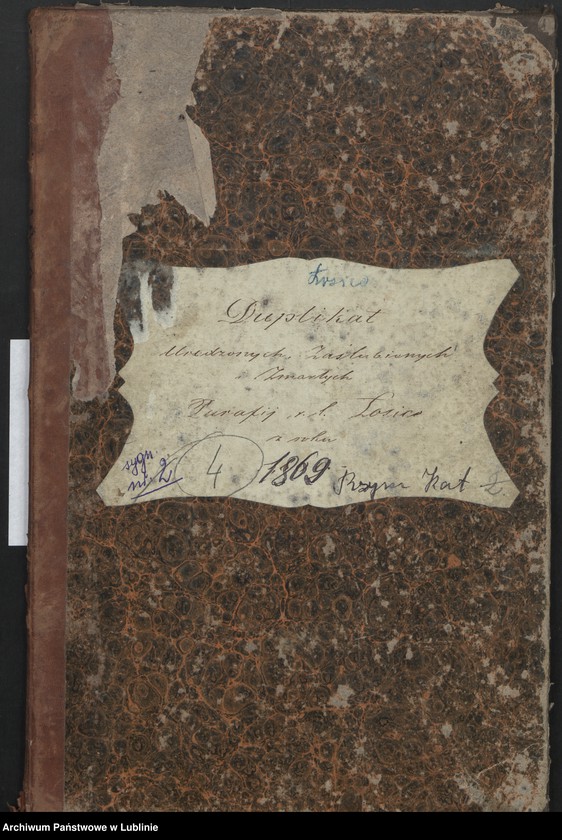 Łosice
Duplikat
Urodzonych, Zaślubionych
i Zmarłych
Parafij r. l. Łosice
z roku
sygn
nr 2
4
1869
Rzym Kat
Archiwum Państwowe w Lublinie